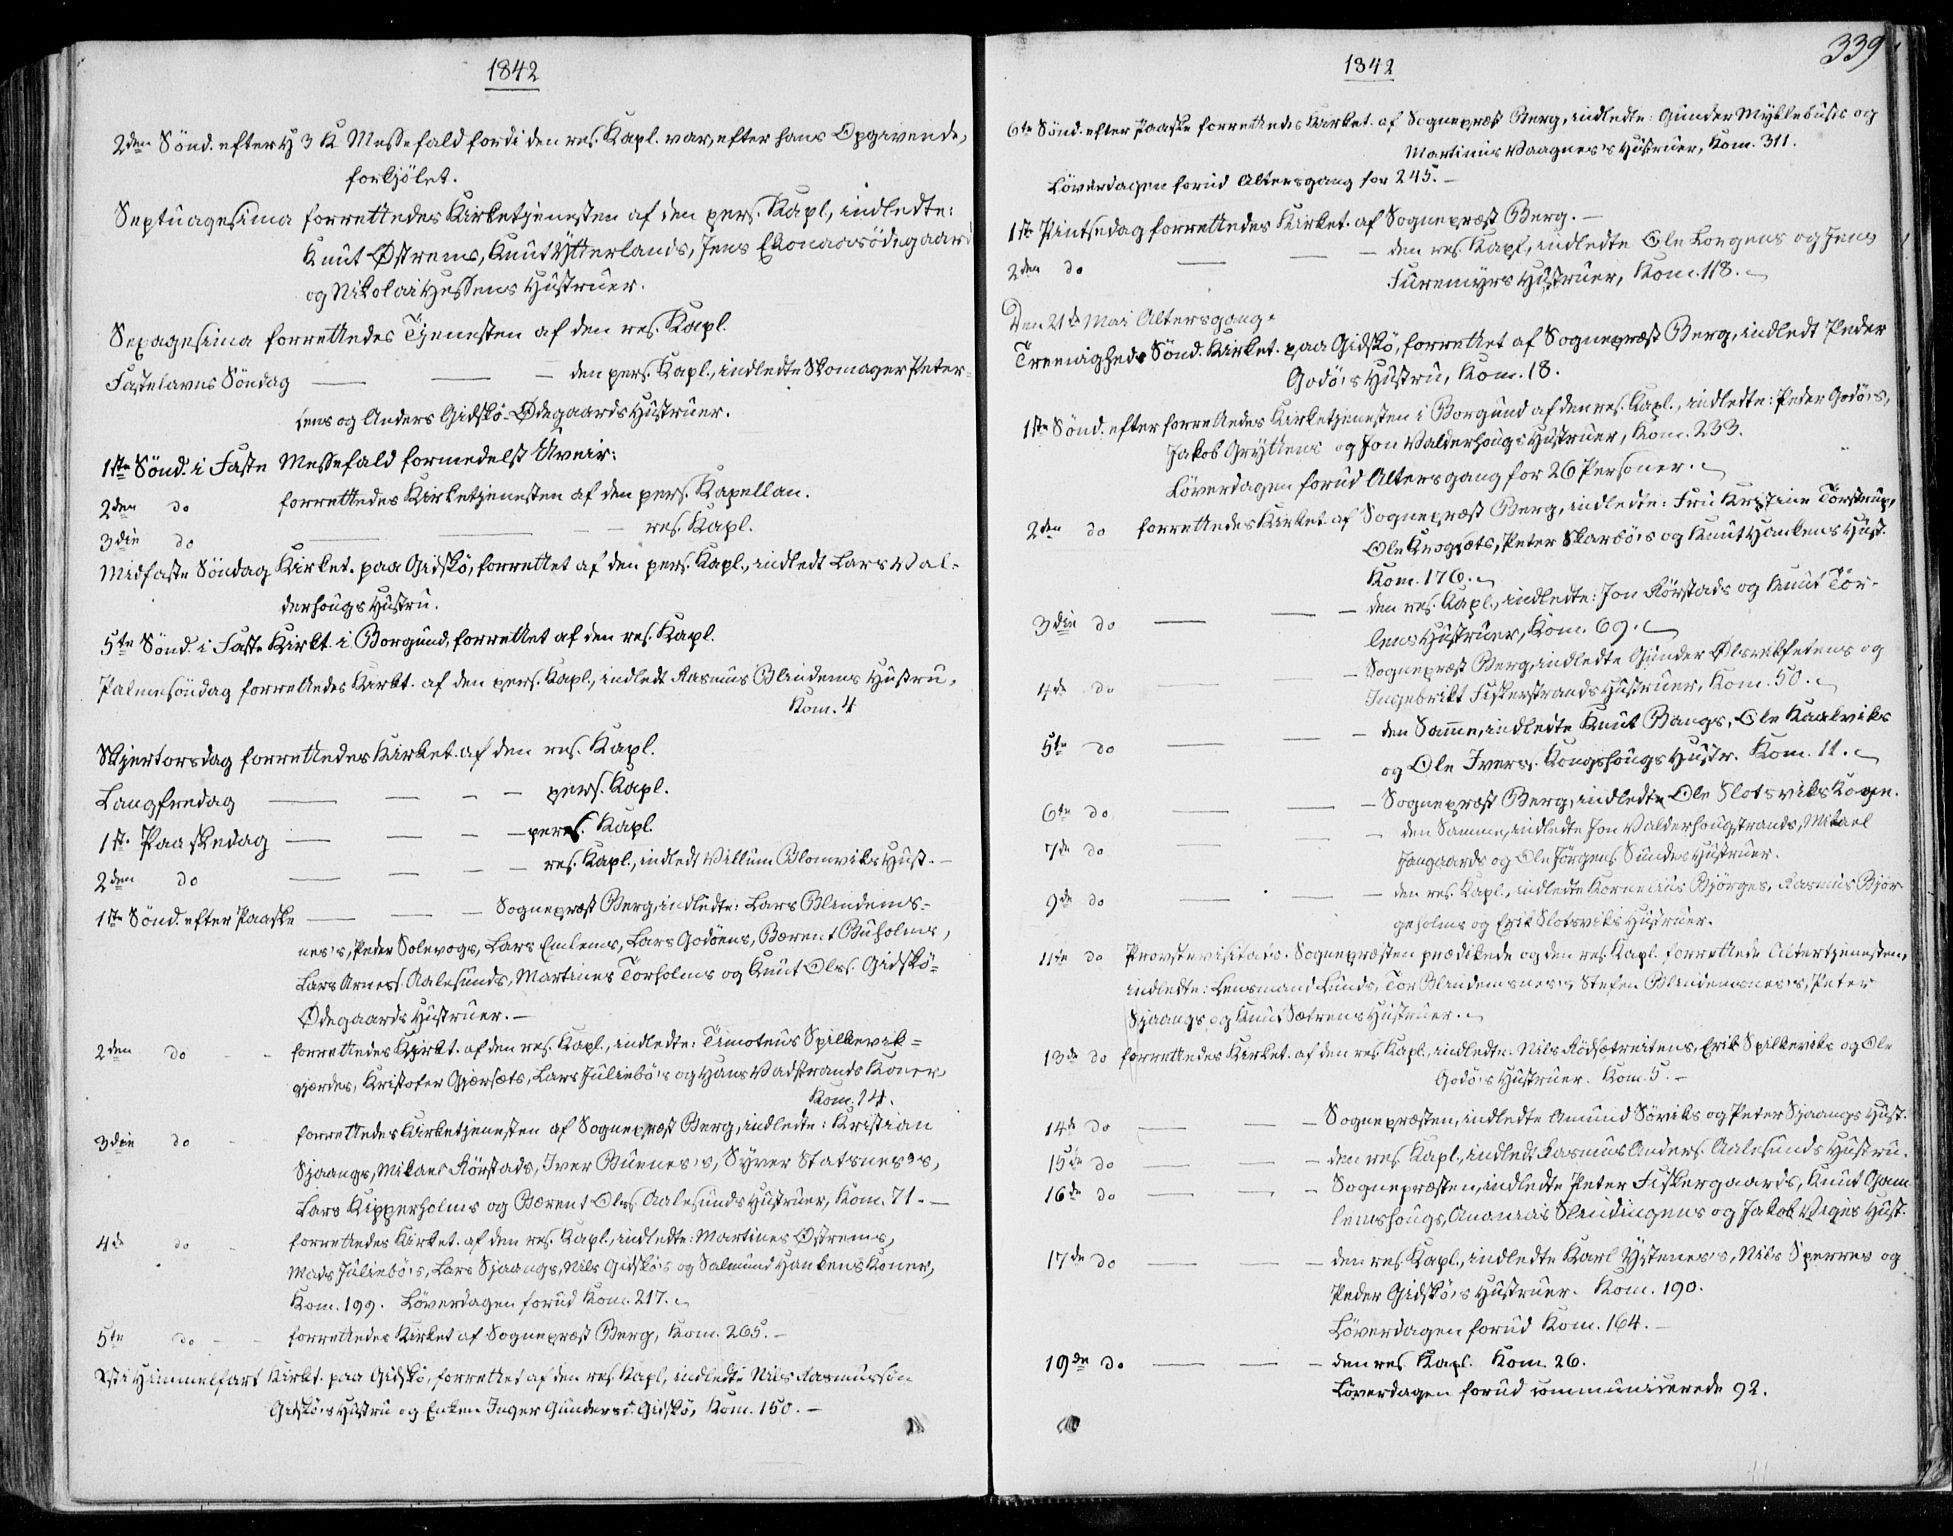 1842
2den Sönd. efter H 3 K Messefald fordi den res. Kapl. var, efter hans Opgivende,
forkjölet.
Septuagesima forrettedes Kirketjenesten af den pers. Kapl, indledte:
Knut Östrems, Knut Ytterlands, Jens
og Nikolai Hessens Hustruer.
Sexagesima forrettedes Tjenesten af den res. Kapl.
Fastelavns Söndag — — — den pers. Kapl., indledte Skomager Peter-
sens og Anders Gidskö-Ödegaards Hustruer.
1ste Sönd. i Faste Messefald formedelst Uveir.
2den do forrettedes Kirketjenesten af den pers. Kapellan.
3die do — — — res. Kapl.
Midfaste Söndag Kirket. paa Gidskö, forrettet af den pers. Kapl., indledt Lars Val-
derhougs Hustru.
5te Sönd. i Faste Kirkt. i Borgund, forrettet af den res. Kapl.
Palmesöndag forrettedes Kirkt. af den pers. Kapl., indledt Rasmus Blindems Hustru,
Kom. 4
Skjertorsdag forrettedes Kirket. af den res. Kapl.
Langfredag — — — — pers. Kapl.
1ste Paaskedag — — — — pers. Kapl.
2den do — — — — res. Kapl., indledt Villum Blomviks Hust. —
1ste Sönd. efter Paaske — — — — Sognepræst Berg, indledte: Lars Blindems-
nes's, Peder Solevogs, Lars Emlems, Lars Godöens, Bærent Buholms,
Lars Arness. Aalesunds, Martines Torholms og Knut Olss. Gidskö-
Ödegaards Hustruer. —
2den do - - forrettedes Kirkt. af den res. Kapl., indledte: Timoteus Spilkevik-
gjærdes, Kristofer Gjærsæts, Lars Juliebö's og Hans Vadstrands Koner,
Kom. 14.
3die do - forrettedes Kirketjenesten af Sognepræst Berg, indledte: Kristian
Sjaangs, Mikael Rörstads, Iver Buenes's, Syver Statsnes's,
Lars Kipperholms og Bærent Olss. Aalesunds Hustruer, Kom. 71. —
4de do - forrettedes Kirket. af den res. Kapl., indledte: Martines Östrems,
Mads Juliebö's, Lars Sjaangs, Nils Gidskö's og Salmund Hankens Koner,
Kom. 199. Löverdagen forud Kom. 217.
5te do - - forrettedes Kirket af Sognepræst Berg, Kom. 265. —
Kristi Himmelfart Kirkt. paa Gidskö, forrettet af den res. Kapl, indledte Nils Rasmussön
Gidskö's Hustru og Enken Inger Gundersd. Gidskö, Kom. 150. —
1842
339
6te Sönd. efter Paaske forrettedes Kirket. af Sognepræst Berg, indledte: Gunder Myklebusts og
Martinus Vaagnes's Hustruer, Kom. 311.
Löverdagen forud Altersgang for 245. —
1ste Pintsedag forrettedes Kirket. af Sognepræst Berg. —
2den do — — — den res. Kapl, indledte Ole Longens og Jens
Furemyrs Hustruer, Kom. 118.
Den 21de Mai Altersgang.
Treenigheds Sönd. Kirket. paa Gidskö, forrettet af Sognepræst Berg, indledt Peder
Godö's Hustru, Kom. 18.
1ste Sönd. efter forrettedes Kirketjenesten i Borgund af den res. Kapl., indledte: Peder Godö's,
Jakob Gryttens og Jon Valderhougs Hustruer, Kom. 233.
Löverdagen forud Altersgang for 26 Personer.
2den do forrettedes Kirket. af Sognepræst Berg, indledte: Fru Kristine Torstrup,
Ole Krogsæts, Peter Skarbö's og Knut Hankens Hust.
Kom. 176.
3die do — — — den res. Kapl., indledte: Jon Rörstads og Knut Tör-
lens Hustruer, Kom. 69.
4de do — — — Sognepræst Berg, indledte Gunder Ölsvikfetens og
Ingebrikt Fiskerstrands Hustruer, Kom. 50.
5te do — — — den Samme, indledte Knut Bangs, Ole Kaalviks
og Ole Iverss. Kongshougs Hustr. Kom. 11.
6te do — — — Sognepræst Berg, indledte Ole Slotsviks Kone.
7de do — — — den Samme, indledte Jon Valderhougstrands, Mikael
Jangaards og Ole Jörgens. Sundes Hustruer.
9de do — — — den res. Kapl., indledte Kornelius Bjørges, Rasmus Bjør-
geholms og Erik Slotsviks Hustruer.
11te do Provstevisitats. Sognepræsten prædikede og den res. Kapl. forrettede Altertjenesten,
indledte: Lensmand Lunds, Tor Blindemsnes's, Stefen Blindemsnes's, Peter
Sjaangs og Knut Sætrens Hustruer.
13de do forrettedes Kirket. af den res. Kapl., indledte: Nils Rödsætreitens, Erik Spilkeviks og Ole
Godö's Hustruer. Kom. 5. —
14de do — — — Sognepræsten, indledte Amund Söviks og Peter Sjaangs Hust.
15de do — — — den res. Kapl., indledt Rasmus Anderss. Aalesunds Hustru.
16de do — — — Sognepræsten, indledte Peter Fiskergaards, Knut Gam-
lemshougs, Ananias Slindingens og Jakob Vegsu Hust.
17de do — — — den res. Kapl., indledte Karl Ystenes's, Nils Sperres og
Peder Gidskö's Hustruer. Kom. 190.
Löverdagen forud Kom. 164. —
19de do — — — den res. Kapl. Kom. 26.
Löverdagen forud communicerede 92.